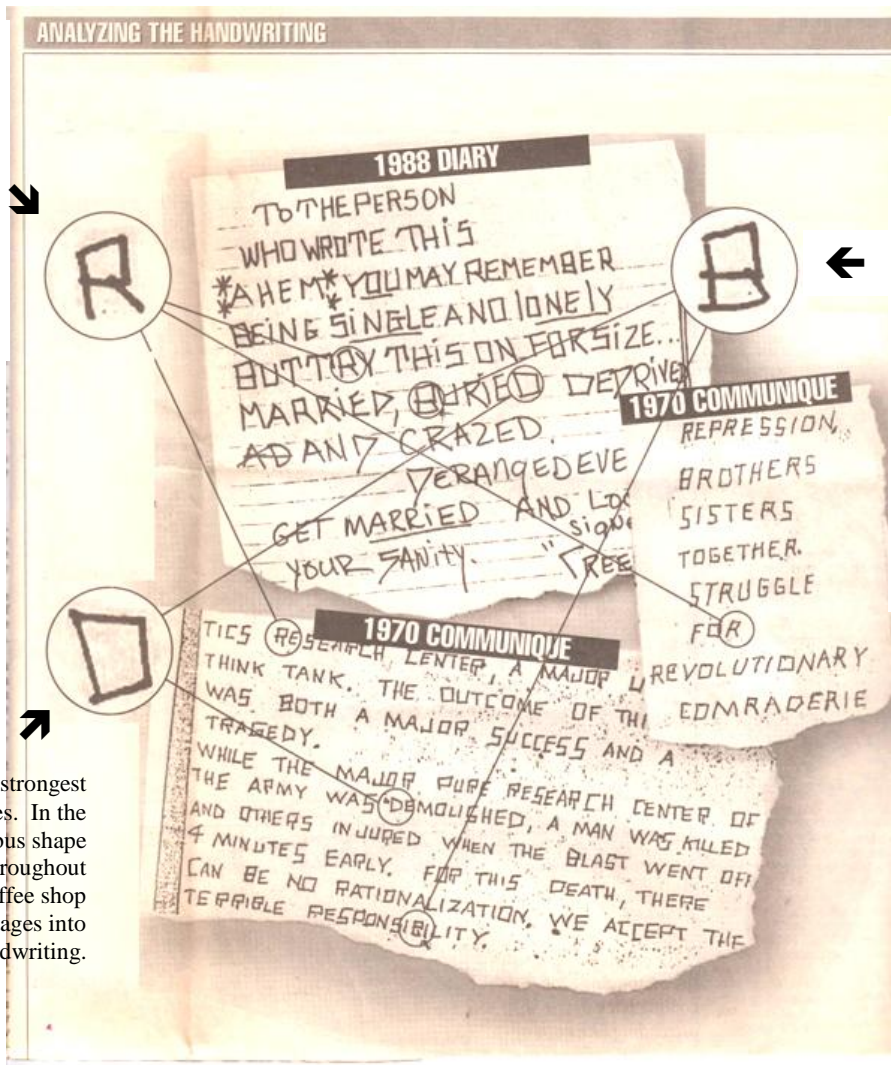 ANALYZING THE HANDWRITING
1988 DIARY
TO THE PERSON
WHO WROTE THIS
*AHEM* YOU MAY REMEMBER
BEING SINGLE AND lONElY
BUT TRY THIS ON FOR SIZE...
MARRIED, BURIED DEPRIVE
AD AND CRAZED.
DERANGED EVE
GET MARRIED AND LO
YOUR SANITY.
"signe
FREE
R
B
D
1970 COMMUNIQUE
REPRESSION,
BROTHERS
SISTERS
TOGETHER.
STRUGGLE
FOR
REVOLUTIONARY
COMRADERIE
1970 COMMUNIQUE
TICS RESEARCH CENTER, A MAJOR U
THINK TANK. THE OUTCOME OF THI
WAS BOTH A MAJOR SUCCESS AND A
TRAGEDY.
WHILE THE MAJOR PURE RESEARCH CENTER OF
THE ARMY WAS DEMOLISHED, A MAN WAS KILLED
AND OTHERS INJURED WHEN THE BLAST WENT OFF
4 MINUTES EARLY. FOR THIS DEATH, THERE
CAN BE NO RATIONALIZATION. WE ACCEPT THE
TERRIBLE RESPONSIBILITY.
strongest
es. In the
ous shape
roughout
ffee shop
ages into
dwriting.